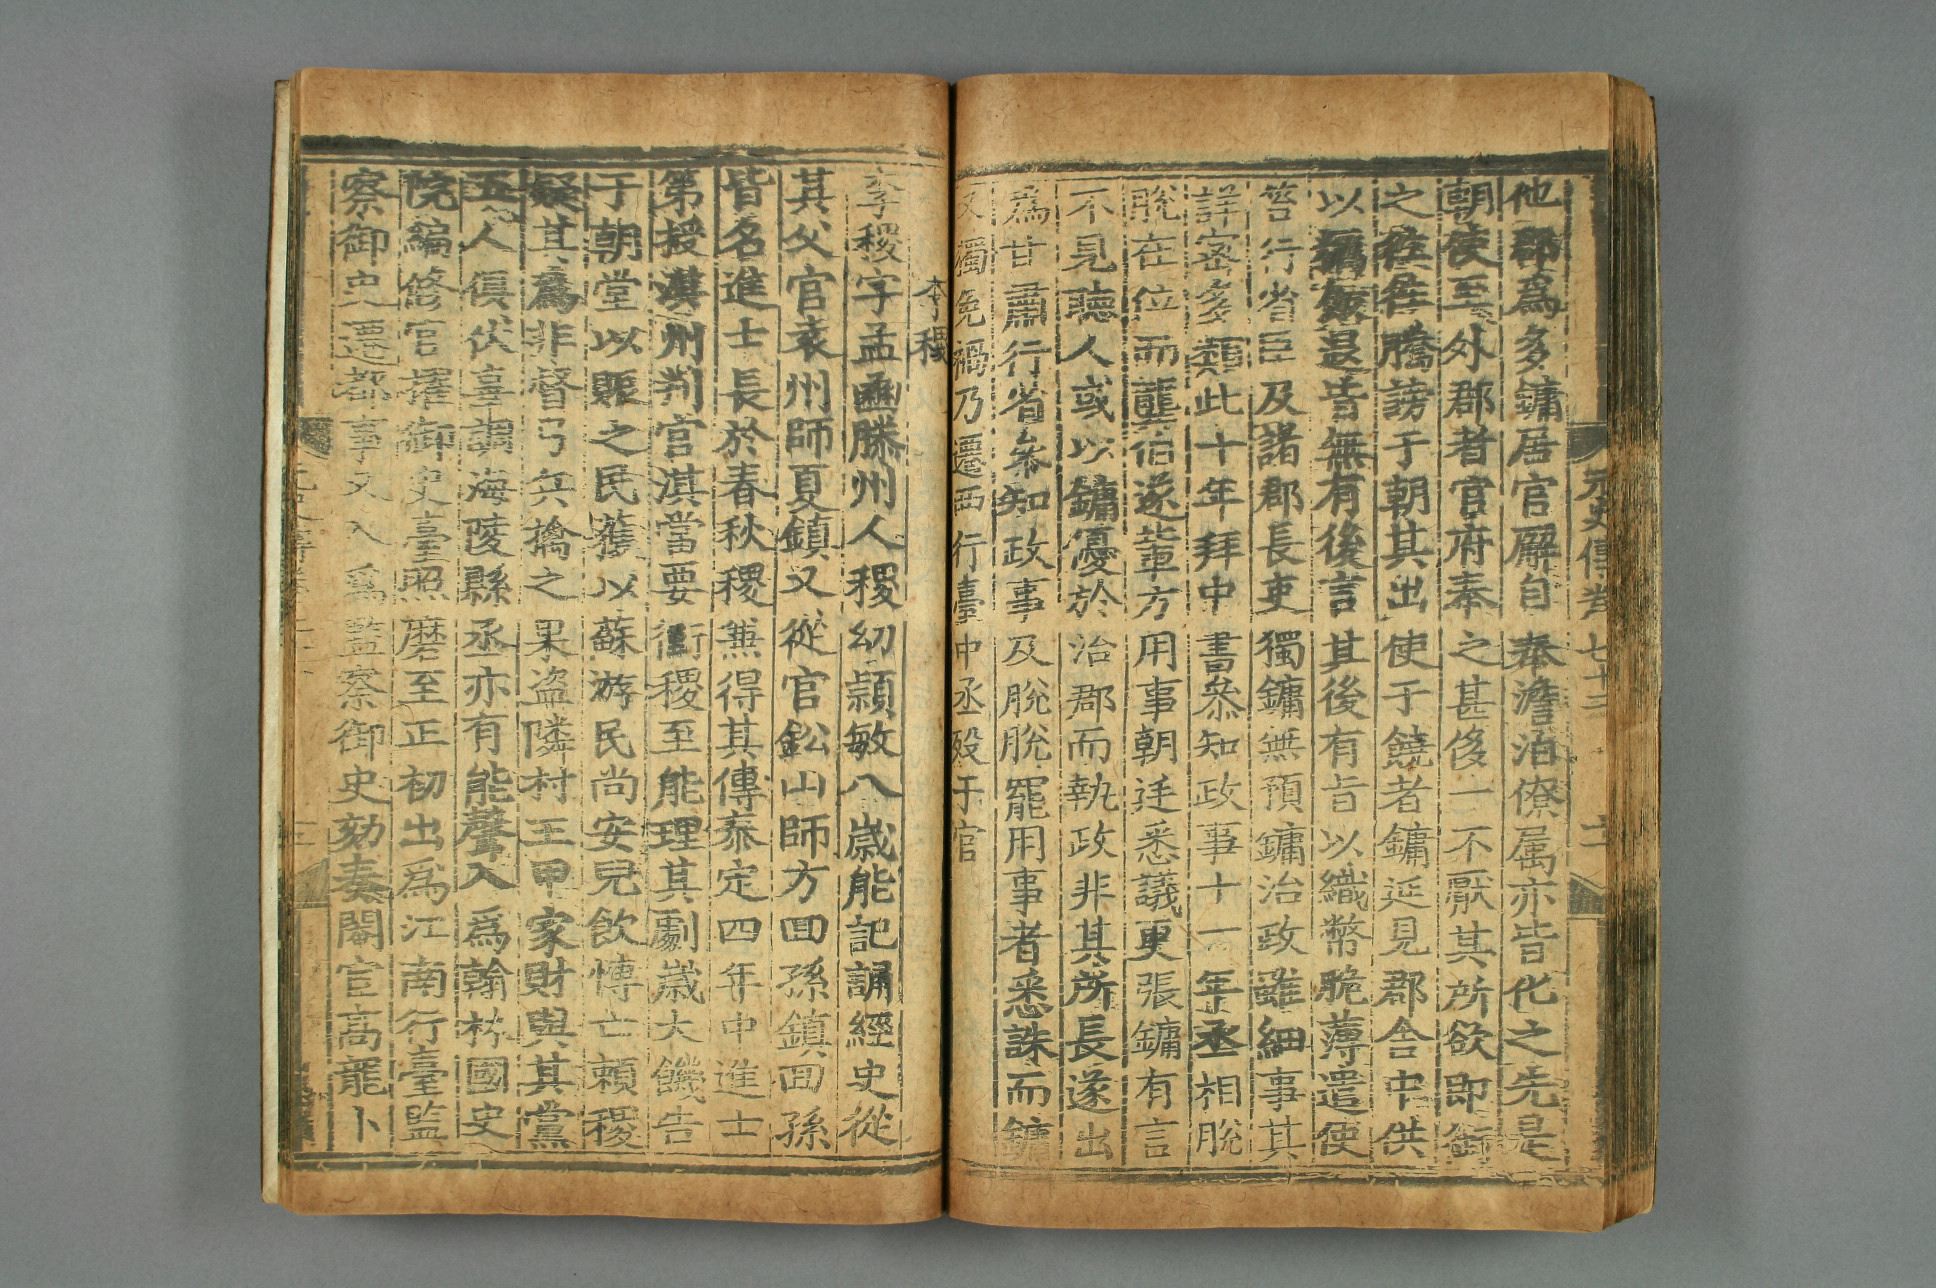 他郡爲多鏞居官廨自奉澹泊僚屬亦皆化之先是
朝使至外郡者官府奉之甚侈一不厭其所欲即銜
之往往騰謗于朝其出使于饒者鏞延見郡舍中供
以糲飯退皆無有後言其後有旨以織幣脆薄遣使
笞行省臣及諸郡長吏獨鏞無預鏞治政雖細事其
詳密多類此十年拜中書叅知政事十一年丞相脫
脫在位而龔伯遂輩方用事朝廷悉議更張鏞有言
不見聽人或以鏞優於治郡而執政非其所長遂出
爲甘肅行省叅知政事及脫脫罷用事者悉誅而鏞
又獨免禍乃遷西行臺中丞殁于官
李稷
李稷字孟豳滕州人稷幼頴敏八歲能記誦經史從
其父官袁州師夏鎮又從官鈆山師方回孫鎮回孫
皆名進士長於春秋稷兼得其傳泰定四年中進士
第授淇州判官淇當要衝稷至能理其劇歲大饑告
于朝堂以賑之民獲以蘇游民尚安兒飲博亡賴稷
疑其爲非督弓兵擒之果盜隣村王甲家財與其黨
五人俱伏辜調海陵縣丞亦有能聲入爲翰林國史
院編修官擢御史臺照磨至正初出爲江南行臺監
察御史遷都事又入爲監察御史劾奏閹宦高龍卜